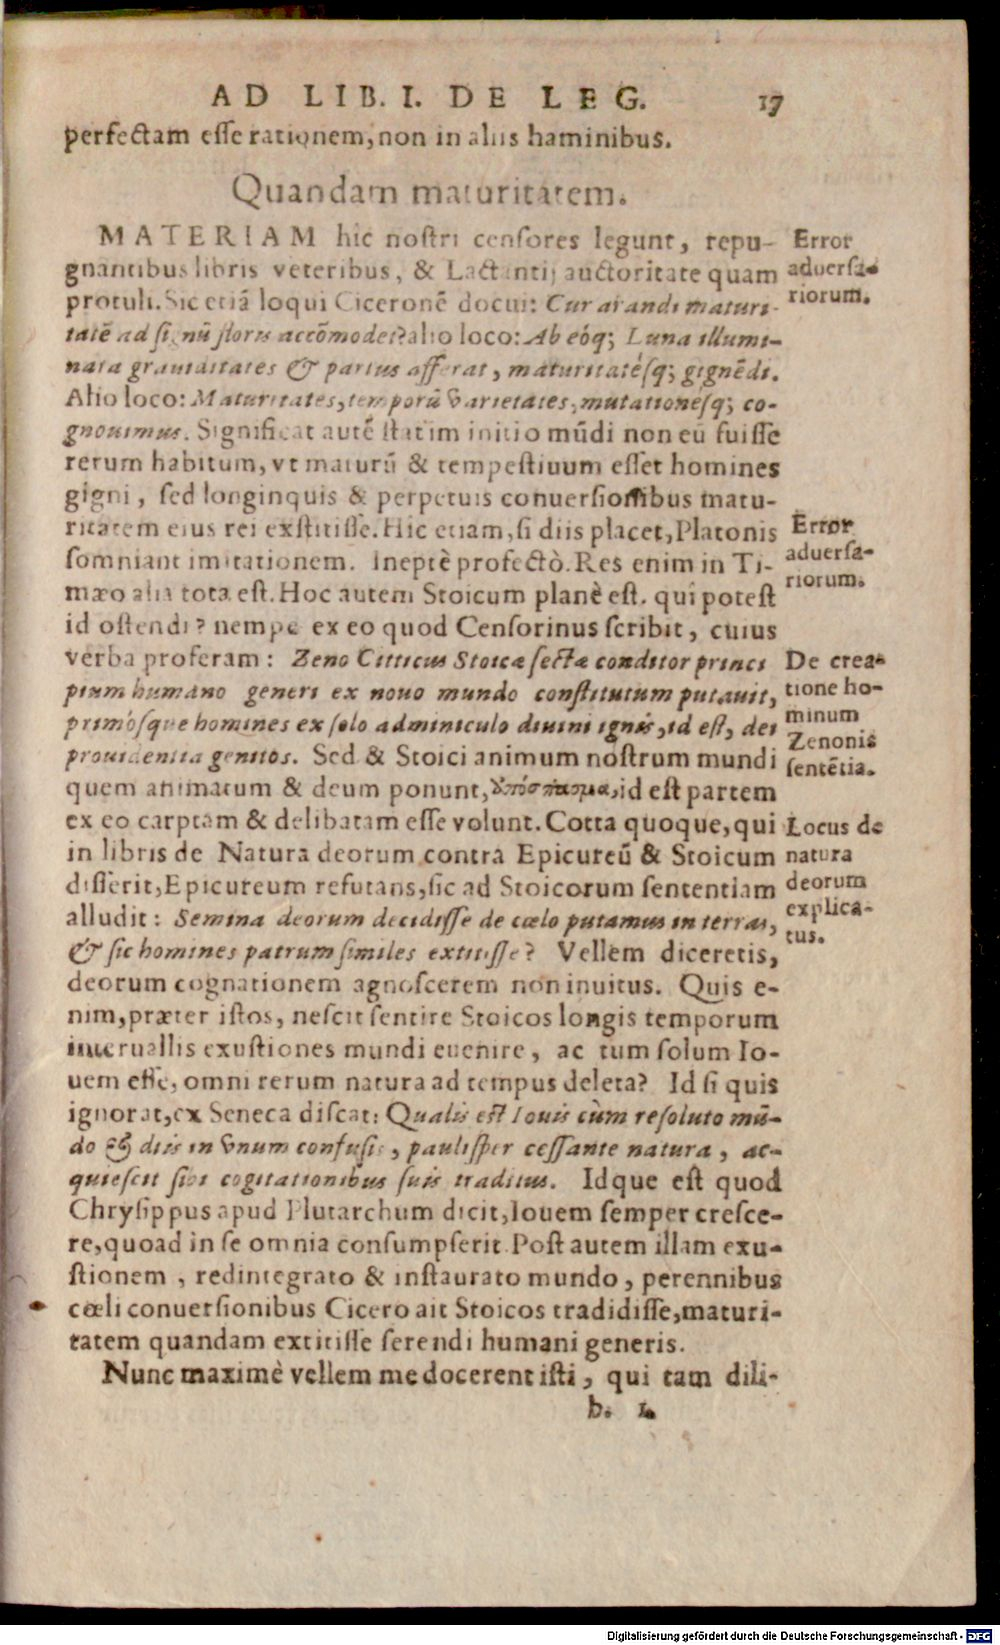 AD LIB. I. DE LEG. 17
perfectam eſſe rationem, non in aliis haminibus.
Quandam maturitatem.
MATERIAM hic noſtri cenſores legunt, repu-
gnantibus libris veteribus, & Lactantij auctoritate quam
protuli. Sic etiã loqui Ciceronē docui: Cur arandi maturi-
tatē ad ſignũ floris accõmodet? alio loco: Ab eóq; Luna illumi-
nata grauiditates & partus afferat, maturitatéſq; gignēdi.
Alio loco: Maturitates, temporũ varietates, mutationeſq; co-
gnouimus. Significat autē ſtatim initio mũdi non eũ fuiſſe
rerum habitum, vt maturũ & tempeſtiuum eſſet homines
gigni, ſed longinquis & perpetuis conuerſionibus matu-
ritatem eius rei exſtitiſſe. Hic etiam, ſi diis placet, Platonis
ſomniant imitationem. Ineptè profectò. Res enim in Ti-
mæo alia tota eſt. Hoc autem Stoicum planè eſt. qui poteſt
id oſtendi? nempe ex eo quod Cenſorinus ſcribit, cuius
verba proferam: Zeno Citticus Stoicæ ſectæ conditor princi
pium humano generi ex nouo mundo conſtitutum putauit,
primóſque homines ex ſolo adminiculo diuini ignis, id eſt, dei
prouidentia genitos. Sed & Stoici animum noſtrum mundi
quem animatum & deum ponunt, ὑπόσπασμα, id eſt partem
ex eo carptam & delibatam eſſe volunt. Cotta quoque, qui
in libris de Natura deorum contra Epicureũ & Stoicum
diſſerit, Epicureum refutans, ſic ad Stoicorum ſententiam
alludit: Semina deorum decidiſſe de cælo putamus in terras,
& ſic homines patrum ſimiles extitiſſe? Vellem diceretis,
deorum cognationem agnoſcerem non inuitus. Quis e-
nim, præter iſtos, neſcit ſentire Stoicos longis temporum
interuallis exuſtiones mundi euenire, ac tum ſolum Io-
uem eſſe, omni rerum natura ad tempus deleta? Id ſi quis
ignorat, ex Seneca diſcat: Qualis eſt Iouis cùm reſoluto mũ-
do & diis in vnum confuſis, pauliſper ceſſante natura, ac-
quieſcit ſibi cogitationibus ſuis traditus. Idque eſt quod
Chryſippus apud Plutarchum dicit, Iouem ſemper creſce-
re, quoad in ſe omnia conſumpſerit. Poſt autem illam exu-
ſtionem, redintegrato & inſtaurato mundo, perennibus
cæli conuerſionibus Cicero ait Stoicos tradidiſſe, maturi-
tatem quandam extitiſſe ſerendi humani generis.
Nunc maximè vellem me docerent iſti, qui tam dili-
b. 1.
Error
aduerſa-
riorum.
Error
aduerſa-
riorum.
De crea-
tione ho-
minum
Zenonis
ſentētia.
Locus de
natura
deorum
explica-
tus.
Digitalisierung gefördert durch die Deutsche Forschungsgemeinschaft - DFG